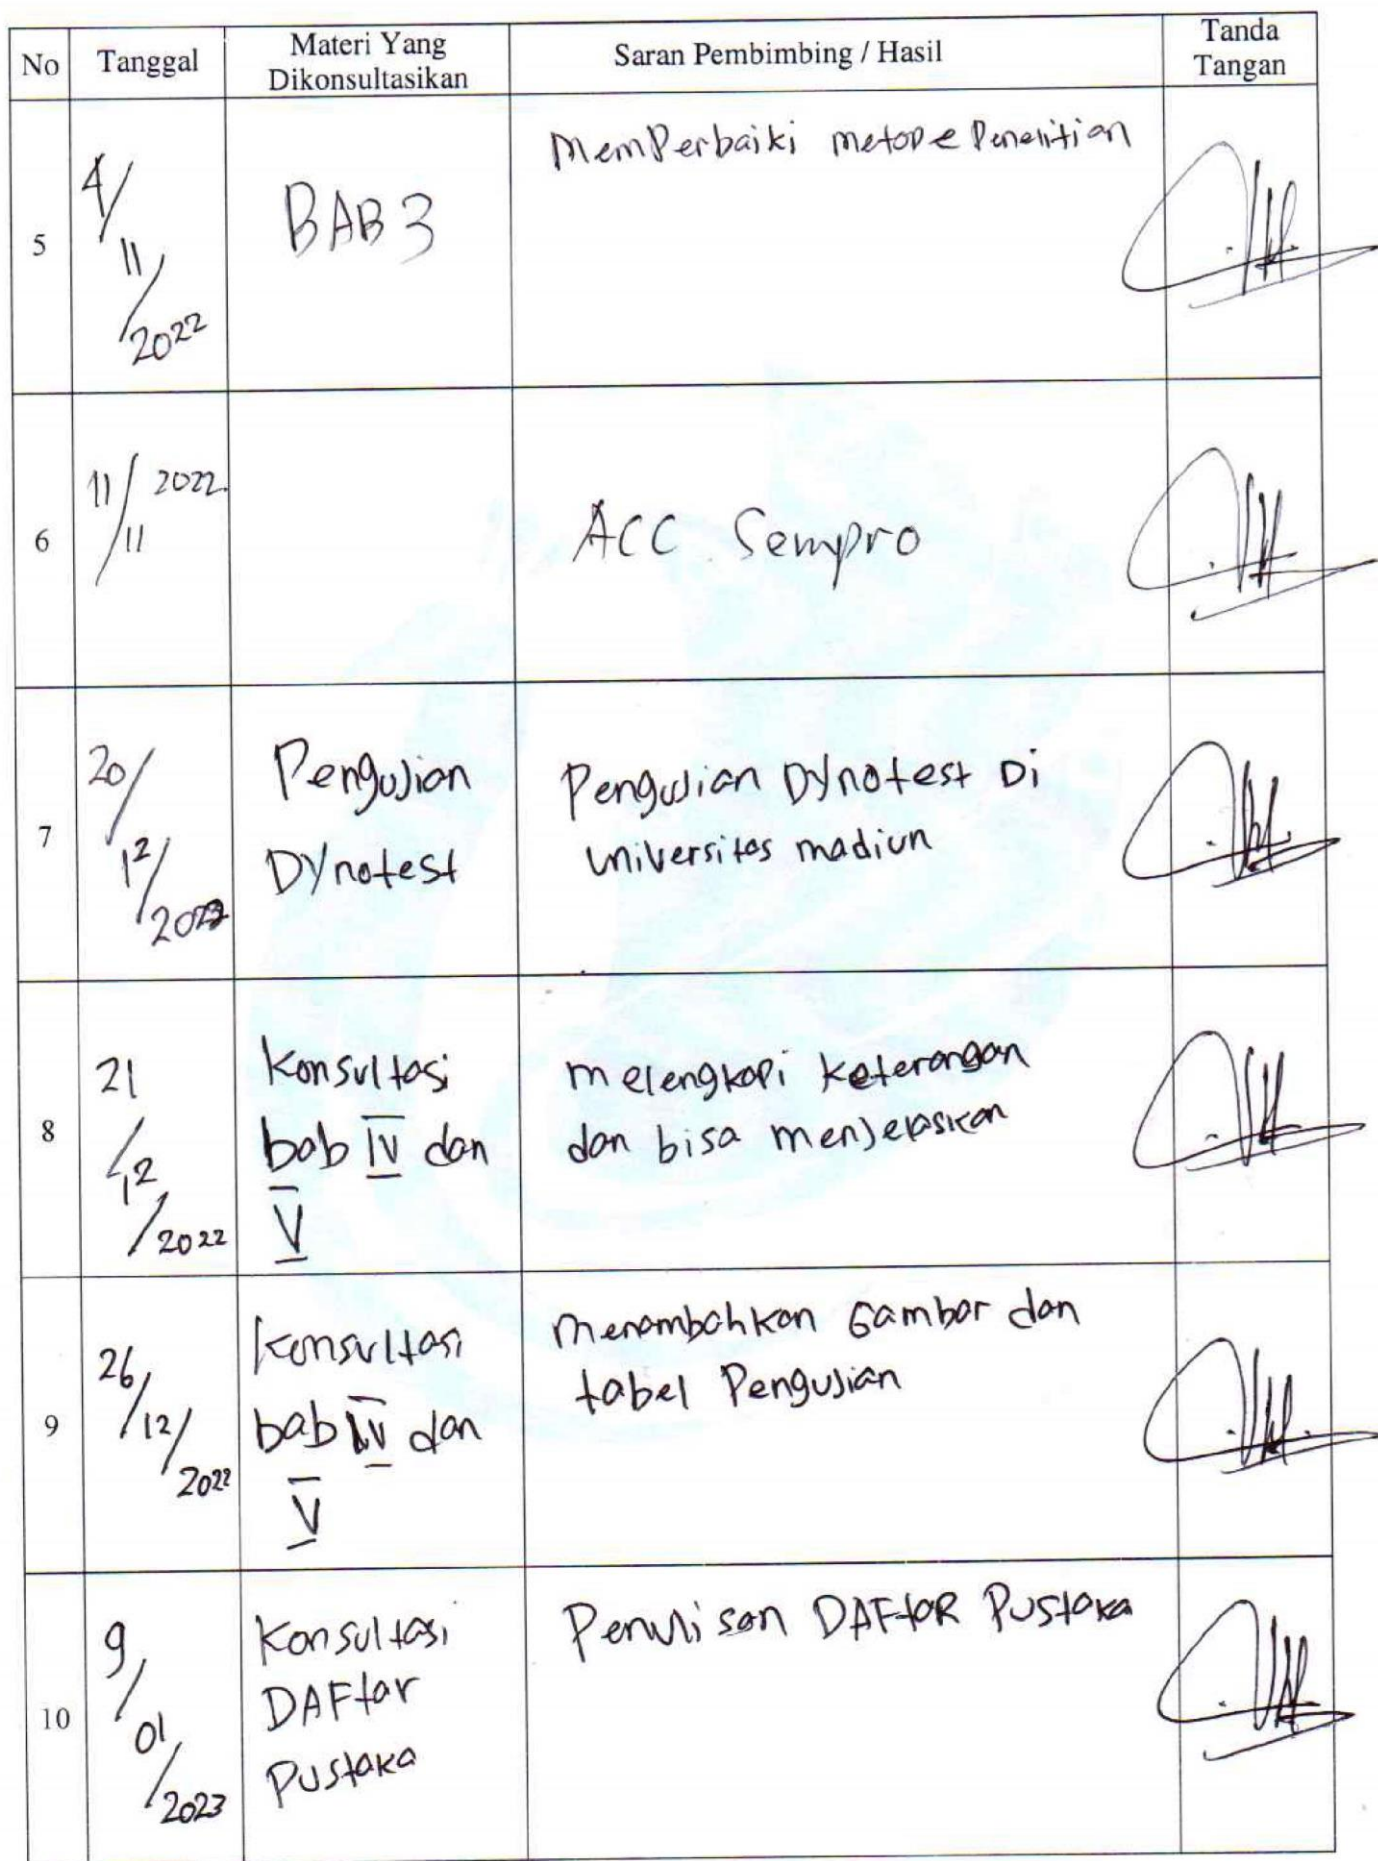 No Tanggal Materi Yang Dikonsultasikan Saran Pembimbing / Hasil Tanda Tangan
5
4/
11/
2022
BAB 3
MemPerbaiki metope Penelitian
6
11/11 2022
ACC Sempro
7
20/
12/
2022
Pengujian
Dynotest
Pengujian Dynotest Di
universitas madiun
8
21
/12
/2022
Konsultasi
bab IV dan
V
melengkapi keterangan
dan bisa menjelaskan
9
26/
12/
2022
Konsultasi
bab IV dan
V
menambahkan Gambar dan
tabel Pengujian
10
9/
01
/2023
Konsultasi
DAFtar
Pustaka
Penulisan DAFtaR Pustaka